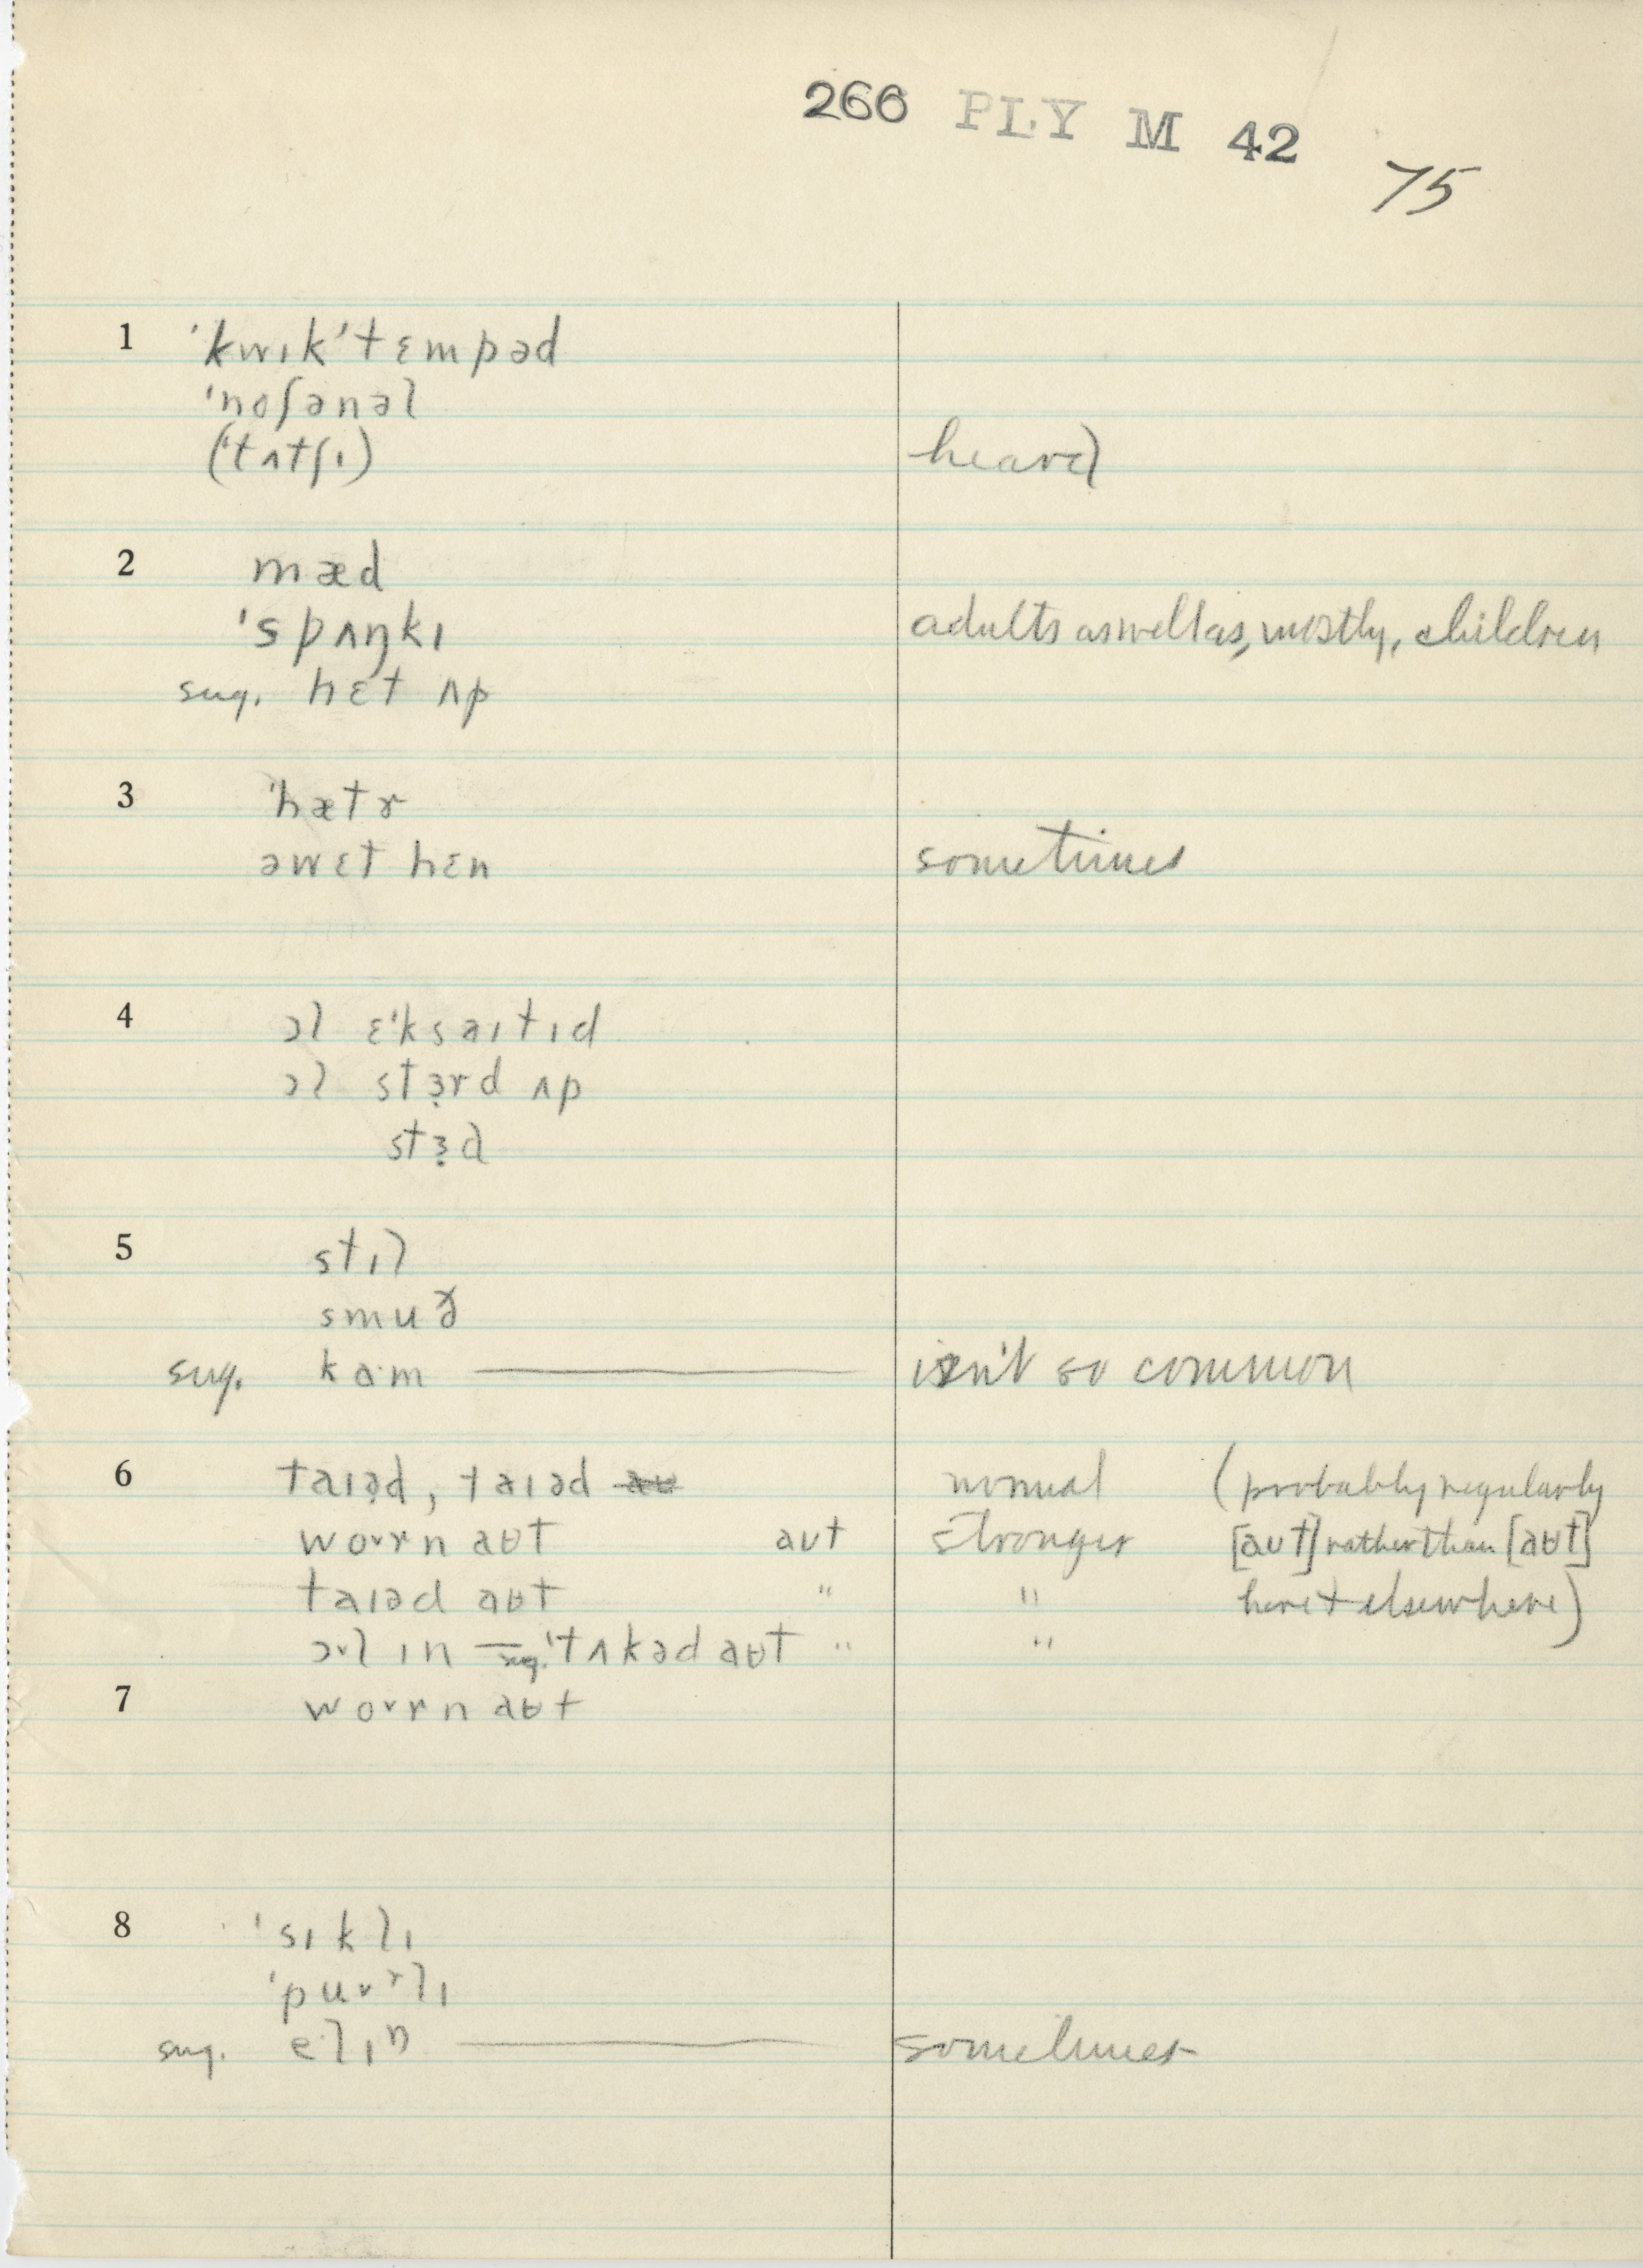 266 PLY M 42
75
1 ˈkwɪkˈtɛmpəd
ˈnoʃənəl
(ˈtʌtʃɪ) heard
2 mæd
ˈspʌŋkɪ adults as well as, mostly, children
sug. hɛt ʌp
3 ˈhætɚ
əwɛt hɛn sometimes
4 ɔl ɛˈksaɪtɪd
ɔl stɜ̣rd ʌp
stɜ̣d
5 stɪl
smuð
sug. kɑ·m — isn't so common
6 taɪə̣d, taɪəd normal (probably regularly
woɚrn aʉt aʊt stronger [aʊt] rather than [aʉt]
taɪəd aʉt " " here + elsewhere)
ɔ˅l ɪn — sug. ˈtʌkəd aʉt " "
7 wo˅rn aʉt
8 ˈsɪklɪ
ˈpu˅ʳlɪ
sug. e·lɪŋ — sometimes